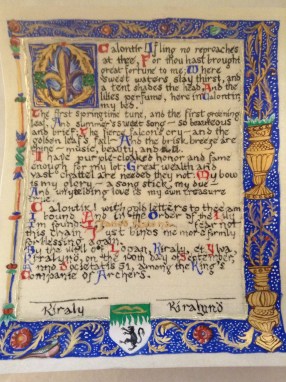 O Calontir I fling no reproaches
at thee, For thou hast brought
great fortune to me; Where
sweet waters slay thirst, and
a tent shades the head And the
lilies perfume, here in Calontir
my bed.
The first springtime tune, and the first greening
leaf; And summer's sweet song – so beauteous
and brief. The fierce falcon's cry – and the
golden leaf's fall – And the brisk breeze are
thine – music, beauty, and all.
I have purple-cloaked honor and fame
enough for my lot; Great wealth and
vast chattel are needed they not. My bow
is my glory – a song sticK, my due –
And unyielding love is my own treasure
true.
Calontir! with gold letters to thee am
I bound And in the Order of the Lily
I'm found fear not
this chain just binds me more firmly
again.
By the will of Logan, Kiraly, et Ylva,
Kiralyno, on the 10th day of September,
Anno Societatis 31, among the King's
Companie of Archers.
Kiraly Kiralyno